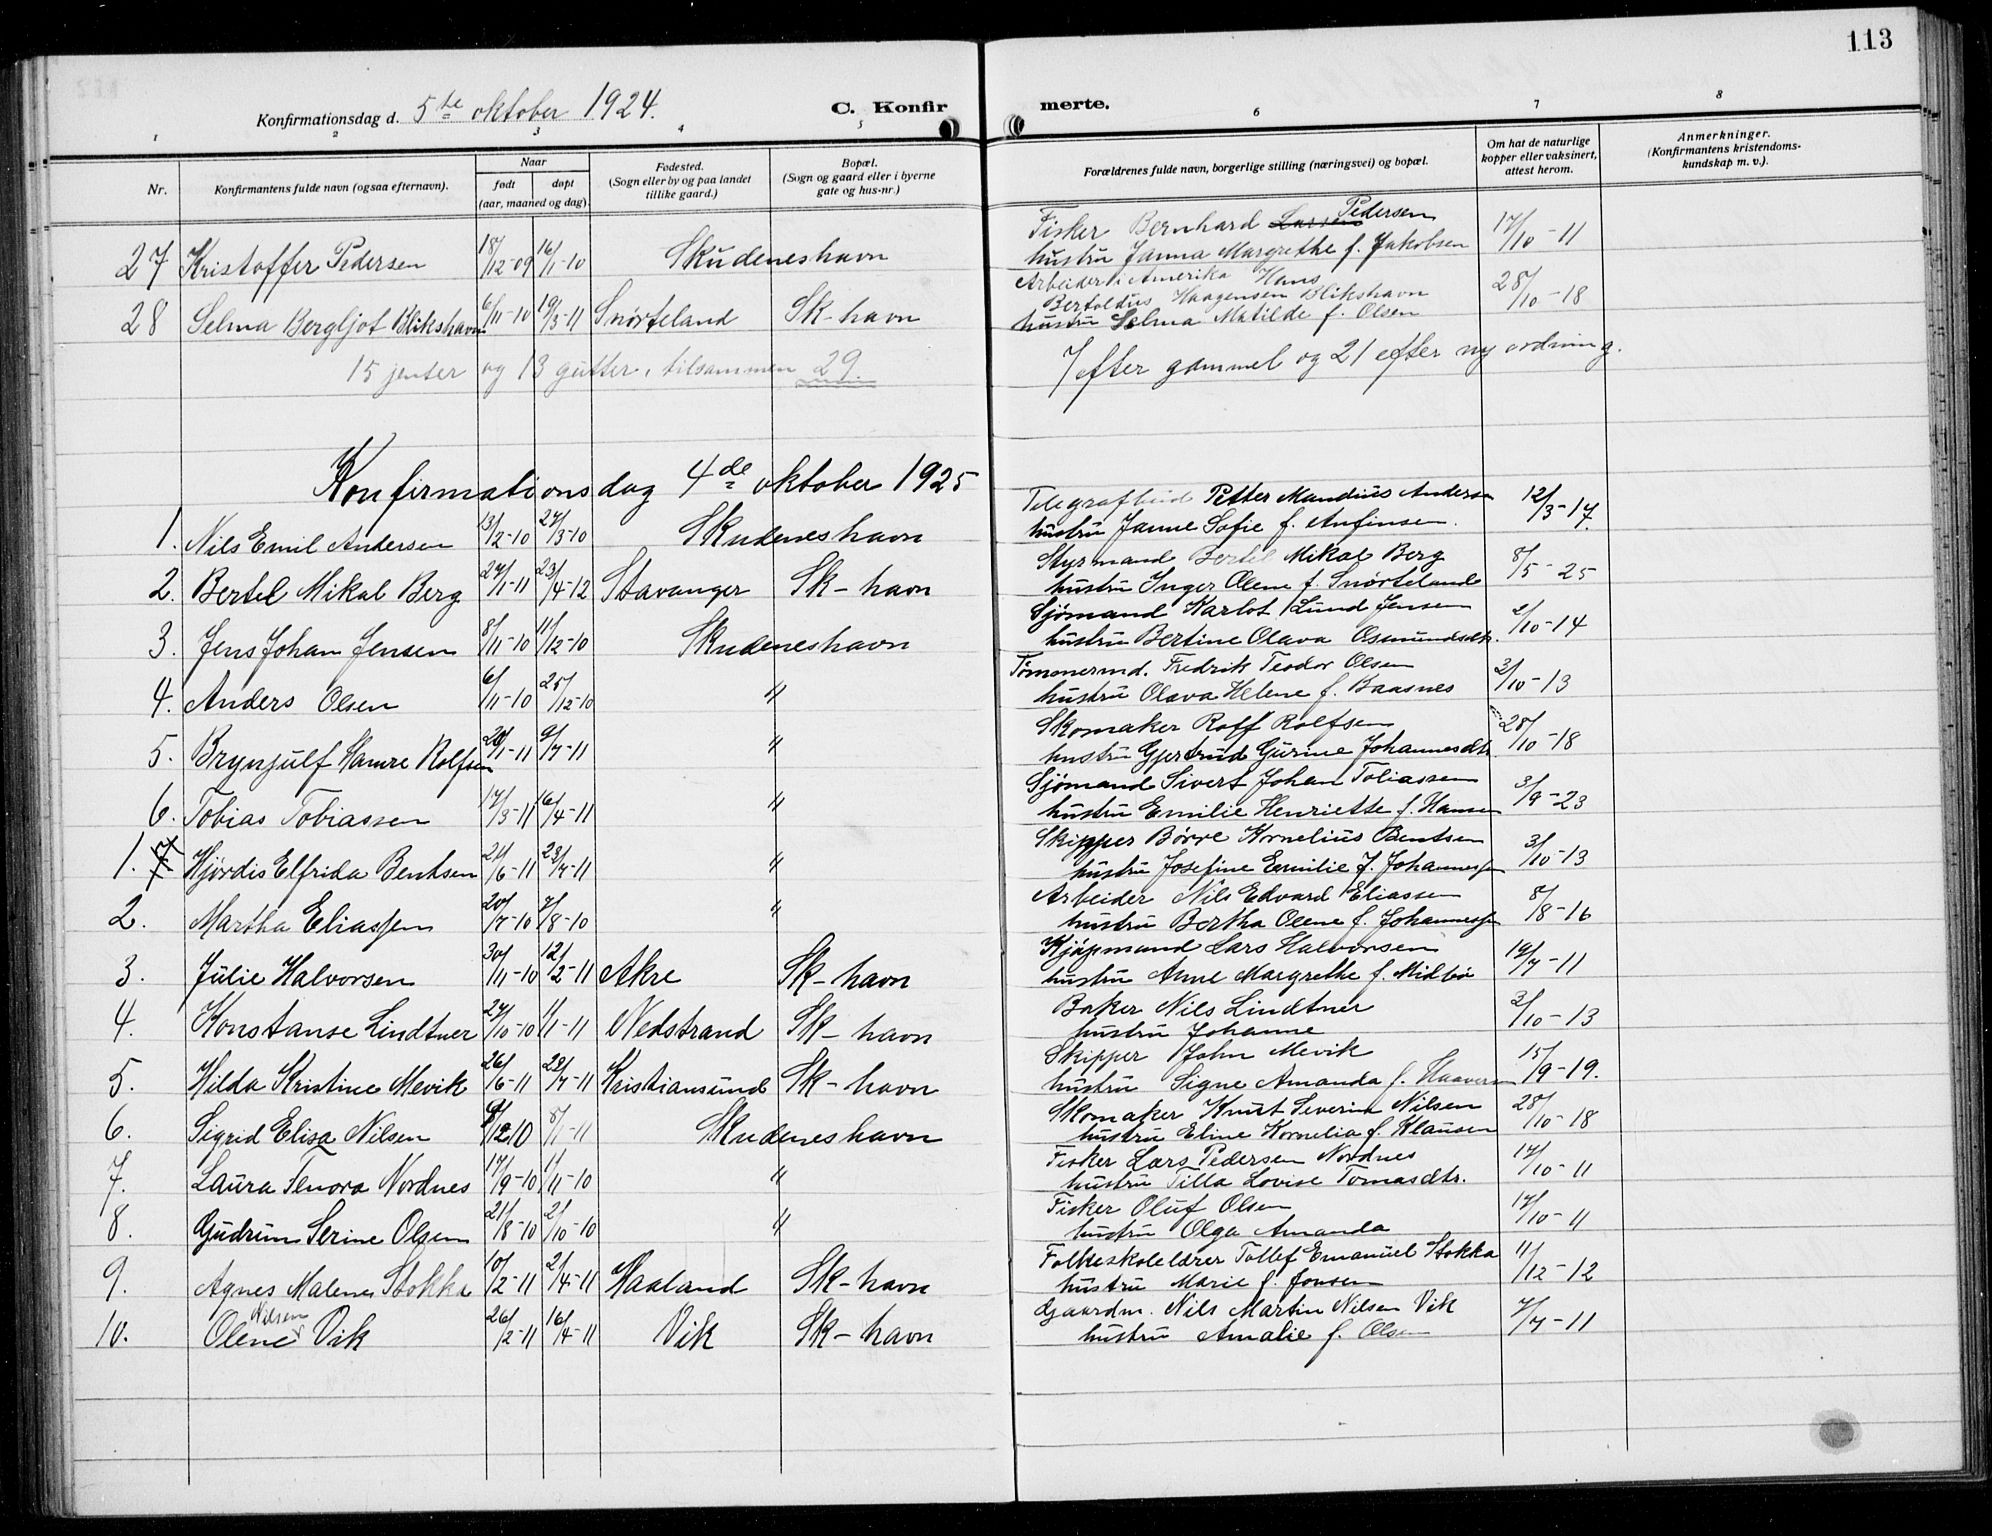 113
Konfirmationsdag d. 5te oktober 1924. C. Konfirmerte.
1 2 3 4 5 6 7 8
Nr. Konfirmantens fulde navn (ogsaa efternavn). Naar født døpt (aar, maaned og dag). Fødested. (Sogn eller by og paa landet tillike gaard.) Bopæl. (Sogn og gaard eller i byerne gate og hus-nr.) Forældrenes fulde navn, borgerlige stilling (næringsvei) og bopæl. Om hat de naturlige kopper eller vaksinert, attest herom. Anmerkninger. (Konfirmantens kristendomskundskap m. v.).
27 Kristoffer Pedersen 18/12-09 16/1-10 Skudeneshavn Fisker Bernhard Larsen Pedersen 17/10-11
hustru Janna Margrethe f. Jakobsen
28 Selma Bergljot Blikshavn 6/11-10 19/3-11 Snørteland Sk-havn Arbeider i Amerika Hans 28/10-18
Bertoldus Haagensen Blikshavn
hustru Selma Matilde f. Olsen
15 jenter og 13 gutter, tilsammen 29. 7 efter gammel og 21 efter ny ordning.
Konfirmationsdag 4de oktober 1925
1. Nils Emil Andersen 13/2-10 27/3-10 Skudeneshavn Telegrafbud Petter Mandius Andersen 12/3-17.
hustru Janne Sofie f. Anfinsen.
2. Bertel Mikal Berg 27/1-11 23/4-12 Stavanger Sk-havn Styrmand Bertel Mikal Berg 8/5-25
hustru Inger Olene f. Snørteland
3. Jens Johan Jensen 8/11-10 11/12-10 Skudeneshavn Sjömand Karlot Lund Jensen 2/10-14
hustru Bertine Olava Osmundsdtr.
4. Anders Olsen 6/11-10 25/12-10 " Tømmermd. Fredrik Teodor Olsen 3/10-13
hustru Olava Helene f. Baasnes
5. Brynjulf Hamre Rolfsen 28/1-11 9/7-11 " Skomaker Rolf Rolfsen 28/10-18
hustru Gjertrud Gurine Johannesdtr.
6. Tobias Tobiassen 17/3-11 16/4-11 " Sjömand Sivert Johan Tobiassen 3/9-23
hustru Emilie Henriette f. Hansen
1. 7 Hjørdis Elfrida Bentsen 21/6-11 23/7-11 " Skipper Børre Kornelius Bentsen 3/10-13
hustru Josefine Emilie f. Johannessen
2. Martha Eliassen 20/7-10 7/8-10 " Arbeider Nils Edvard Eliassen 8/8-16
hustru Bertha Olene f. Johannessen
3. Julie Halvorsen 30/11-10 12/2-11 Akre Sk-havn Kjøpmand Lars Halvorsen 14/7-11
hustru Anne Margrethe f. Midbö
4. Konstanse Lindtner 27/10-10 1/1-11 Nedstrand Sk-havn Baker Nils Lindtner 3/10-13
hustru Johanne
5. Hilda Kristine Mevik 26/6-11 23/7-11 Kristiansund Sk-havn Skipper John Mevik 15/9-19.
hustru Signe Amanda f.
6. Sigrid Elisa Nilsen 9/12 10 8/1-11 Skudeneshavn Skomaker Knut Severin Nilsen 28/10-18
hustru Eline Kornelia f. Klausen
7. Laura Tenora Nordnes 17/9-10 1/11-10 " Fisker Lars Pedersen Nordnes 17/10-11
hustru Tilla Lovise Tomasdtr.
8. Gudrun Serine Olsen 21/8-10 2/10-10 " Fisker Oluf Olsen 17/10-11
hustru Olga Amanda
9. Agnes Malene Stokka 10/2-11 2/4-11 Haaland Sk-havn Folkeskolelærer Tollef Emanuel Stokka 11/12-12
hustru Marie f. Jonsen
10. Olene Nilsen Vik 26/2-11 16/4-11 Vik Sk-havn Gaardm. Nils Martin Nilsen Vik 7/7-11
hustru Amalie f. Olsen